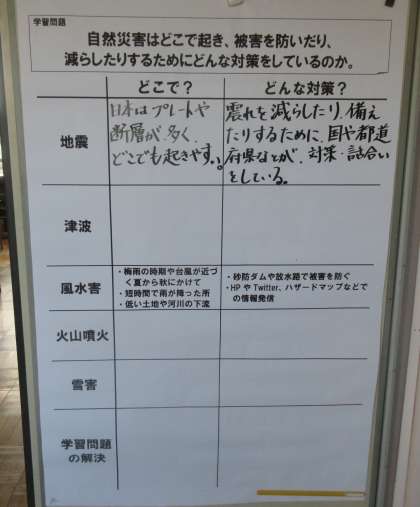 学習問題
自然災害はどこで起き、被害を防いだり、
減らしたりするためにどんな対策をしているのか。
どこで？
どんな対策？
地震
日本はプレートや
断層が多く、
どこでも起きやすい。
震れを減らしたり、備え
たりするために、国や都道
府県などが、対策・話合い
をしている。
津波
風水害
・梅雨の時期や台風が近づ
く夏から秋にかけて
・短時間で雨が降った所
・低い土地や河川の下流
・砂防ダムや放水路で被害を防ぐ
・HPやTwitter、ハザードマップなどで
の情報発信
火山噴火
雪害
学習問題
の解決